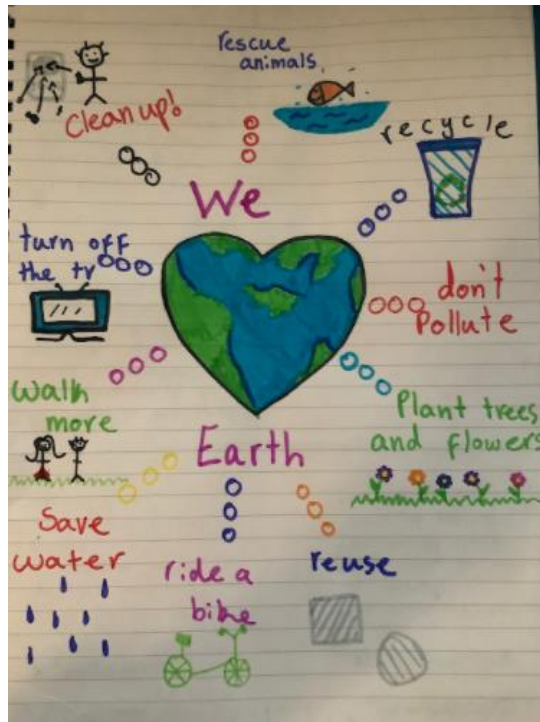 rescue
animals
Clean up!
recycle
We
turn off
the tv
don't
Pollute
Walk
more
Plant trees
and flowers
Earth
Save
water
ride a
bike
reuse